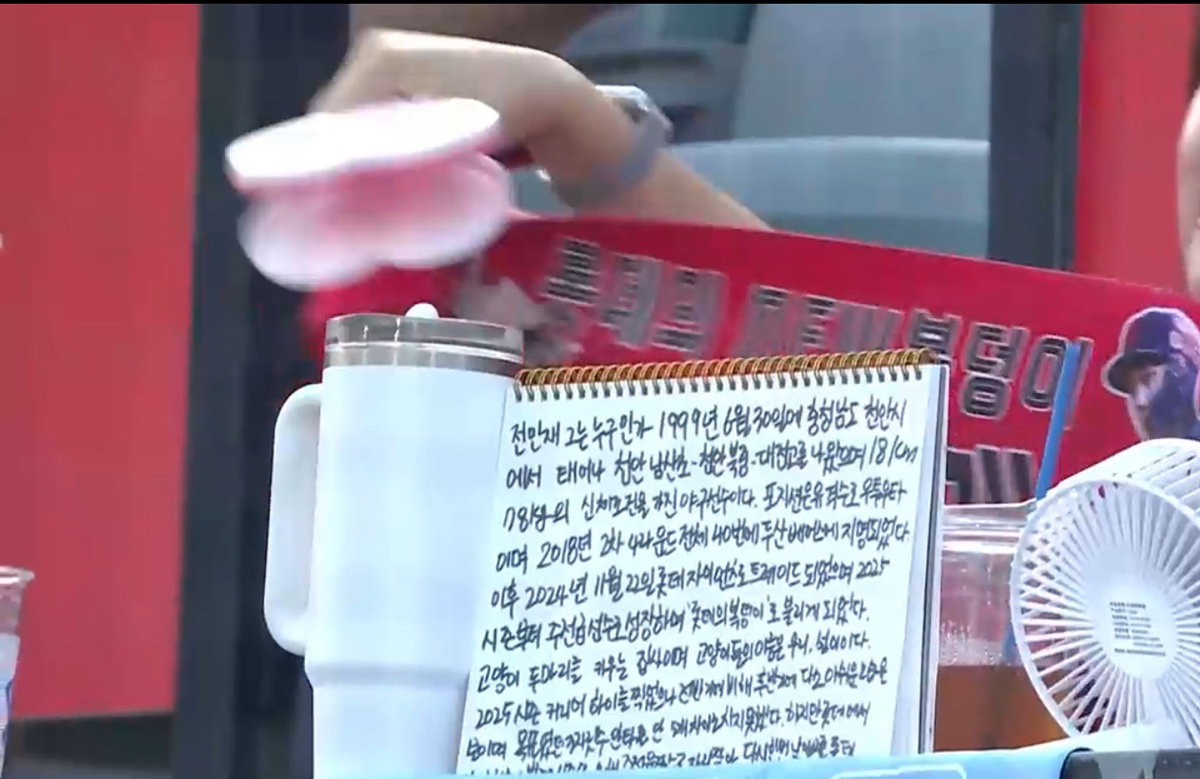 롯데의 복덩이
전민재 그는 누구인가 1999년 6월 30일에 충청남도 천안시
에서 태어나 천안 남산초-천안 북중-대전고를 나왔으며 181cm
78kg의 신체조건을 가진 야구선수이다. 포지션은 유격수로 우투우타
이며 2018년 2차 4라운드 전체 40번에 두산 베어스에 지명되었다
이후 2024년 11월 22일 롯데 자이언츠로 트레이드 되었으며 2025
시즌부터 주전급 선수로 성장하여 '롯데의 복덩이'로 불리게 되었다.
고양이 두마리를 키우는 집사이며 고양이들의 이름은
2025 시즌 커리어 하이를 찍었으나 전반기에 비해 후반기에 다소 아쉬운 모습을
보이며 하지만 롯데에서